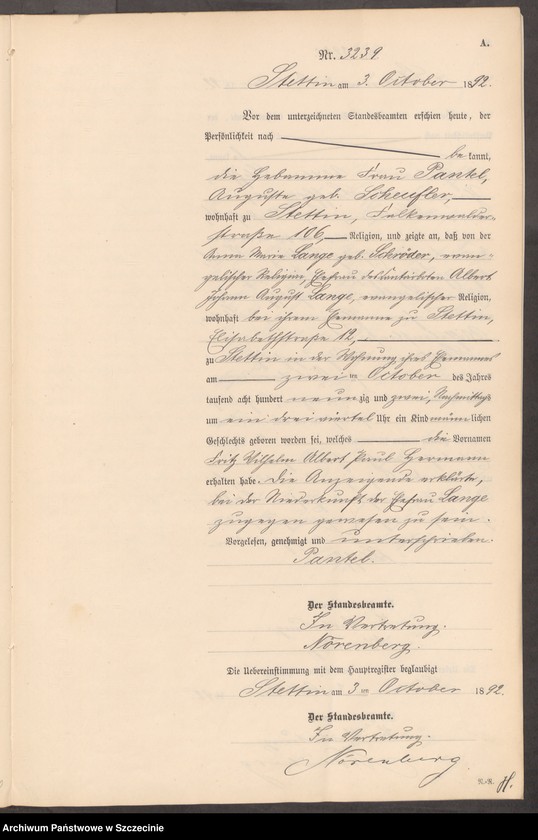 A.
Nr. 3239
Stettin am 3. October 1892.
Vor dem unterzeichneten Standesbeamten erschien heute, der
Persönlichkeit nach
be kannt,
die Hebamme Frau Pantel,
Auguste geb. Scheufler,
wohnhaft zu Stettin, Falkenwalder-
straße 106, Religion, und zeigte an, daß von der
Anna Marie Lange geb. Schröder, evan-
gelischer Religion, Ehefrau des Albert
Johann August Lange, evangelischer Religion,
wohnhaft bei ihrem Ehemanne zu Stettin,
Elisabethstraße 12,
zu Stettin in der Wohnung ihres Ehemannes
am zwei ten October des Jahres
tausend acht hundert neun zig und zwei, Nachmittags
um ein drei viertel Uhr ein Kind männ lichen
Geschlechts geboren worden sei, welches die Vornamen
Fritz Wilhelm Albert Paul Hermann
erhalten habe. Die Anzeigende erklärte,
bei der Niederkunft der Ehefrau Lange
zugegen gewesen zu sein.
Vorgelesen, genehmigt und unterschrieben.
Pantel.
Der Standesbeamte.
In Vertretung.
Nörenberg.
Die Uebereinstimmung mit dem Hauptregister beglaubigt
Stettin am 3ten October 1892.
Der Standesbeamte.
In Vertretung.
Nörenberg
N.-R. H.
Archiwum Państwowe w Szczecinie